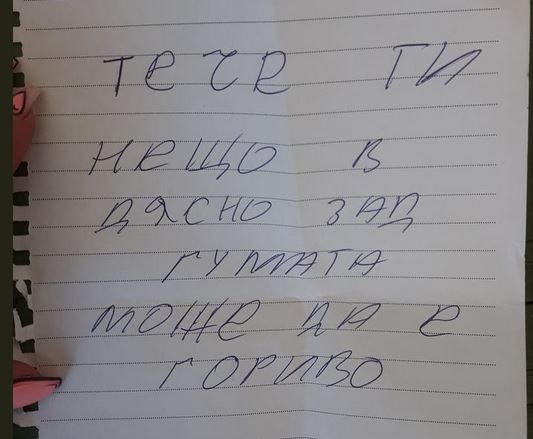 ТЕЧЕ ТИ
НЕЩО В
ДЯСНО ЗАД
ГУМАТА
МОЖЕ ДА Е
ГОРИВО